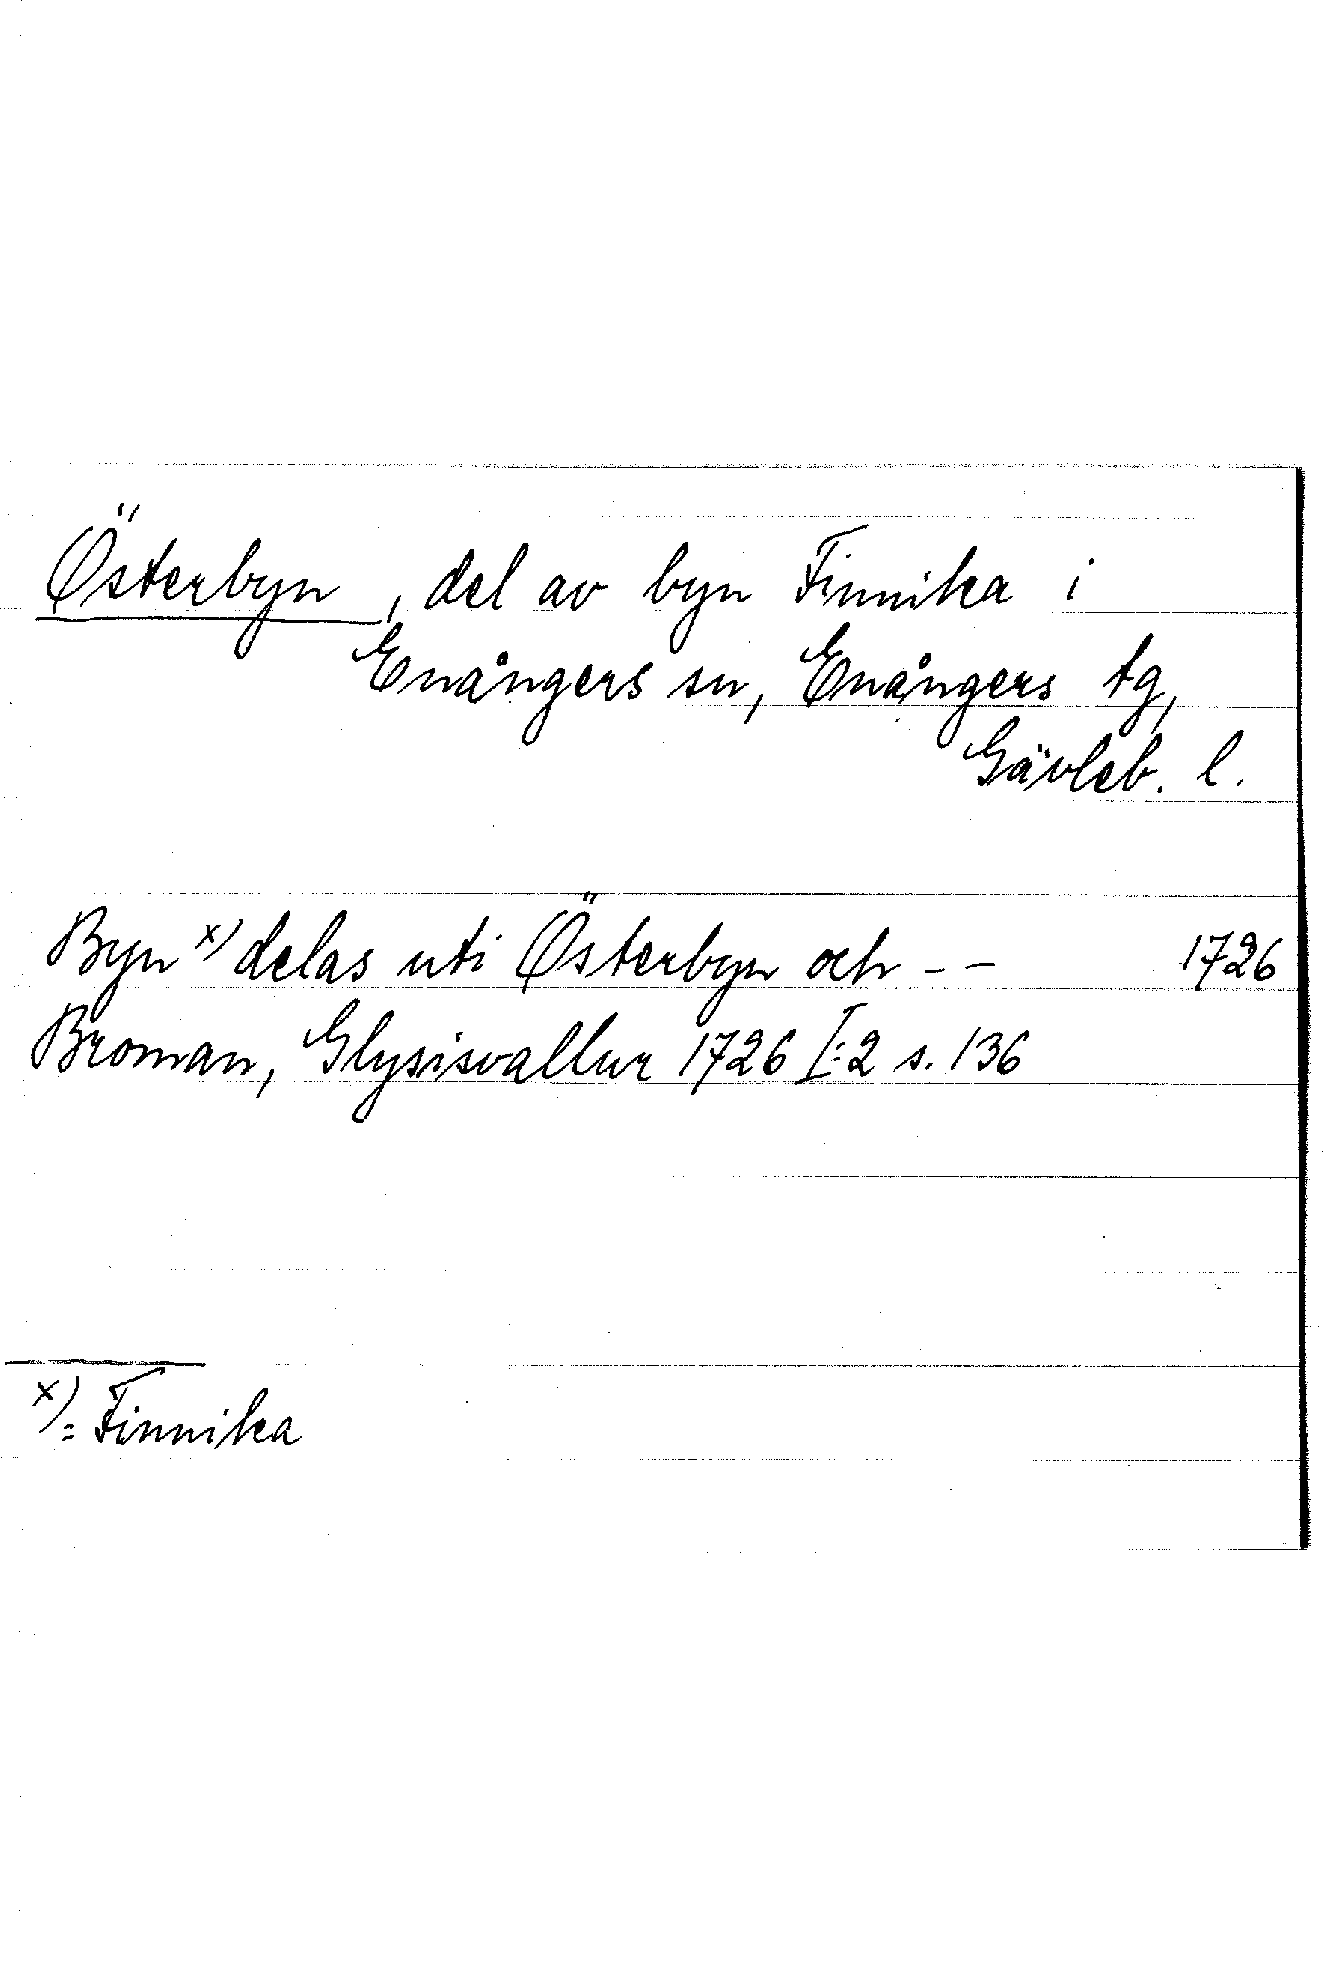 Österbyn, del av byn Finnika i
Enångers sn, Enångers tg,
Gävleb. l.
Byn x) delas uti Österbyn och - - 1726
Broman, Glysisvallur 1726 I:2 s. 136
x) = Finnika